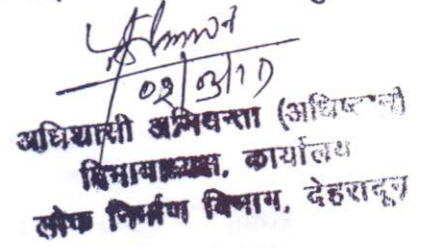 02/03/17
अधिशासी अभियन्ता (अधिष्ठान)
विभागाध्यक्ष, कार्यालय
लोक निर्माण विभाग, देहरादून